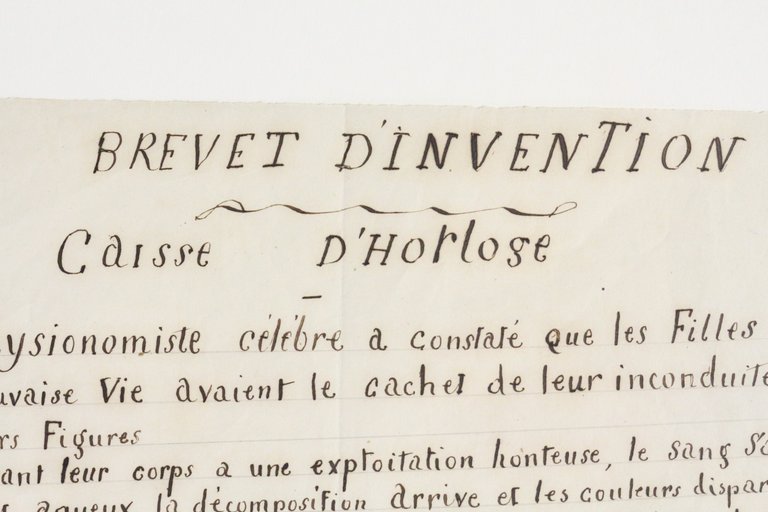 BREVET D'INVENTION
Caisse D'Horloge
ysionomiste célébre a constaté que les Filles
uvaise Vie avaient le cachet de leur inconduite
rs Figures
ant leur corps a une exploitation honteuse, le sang
aqueux la décomposition arrive et les couleurs dispar